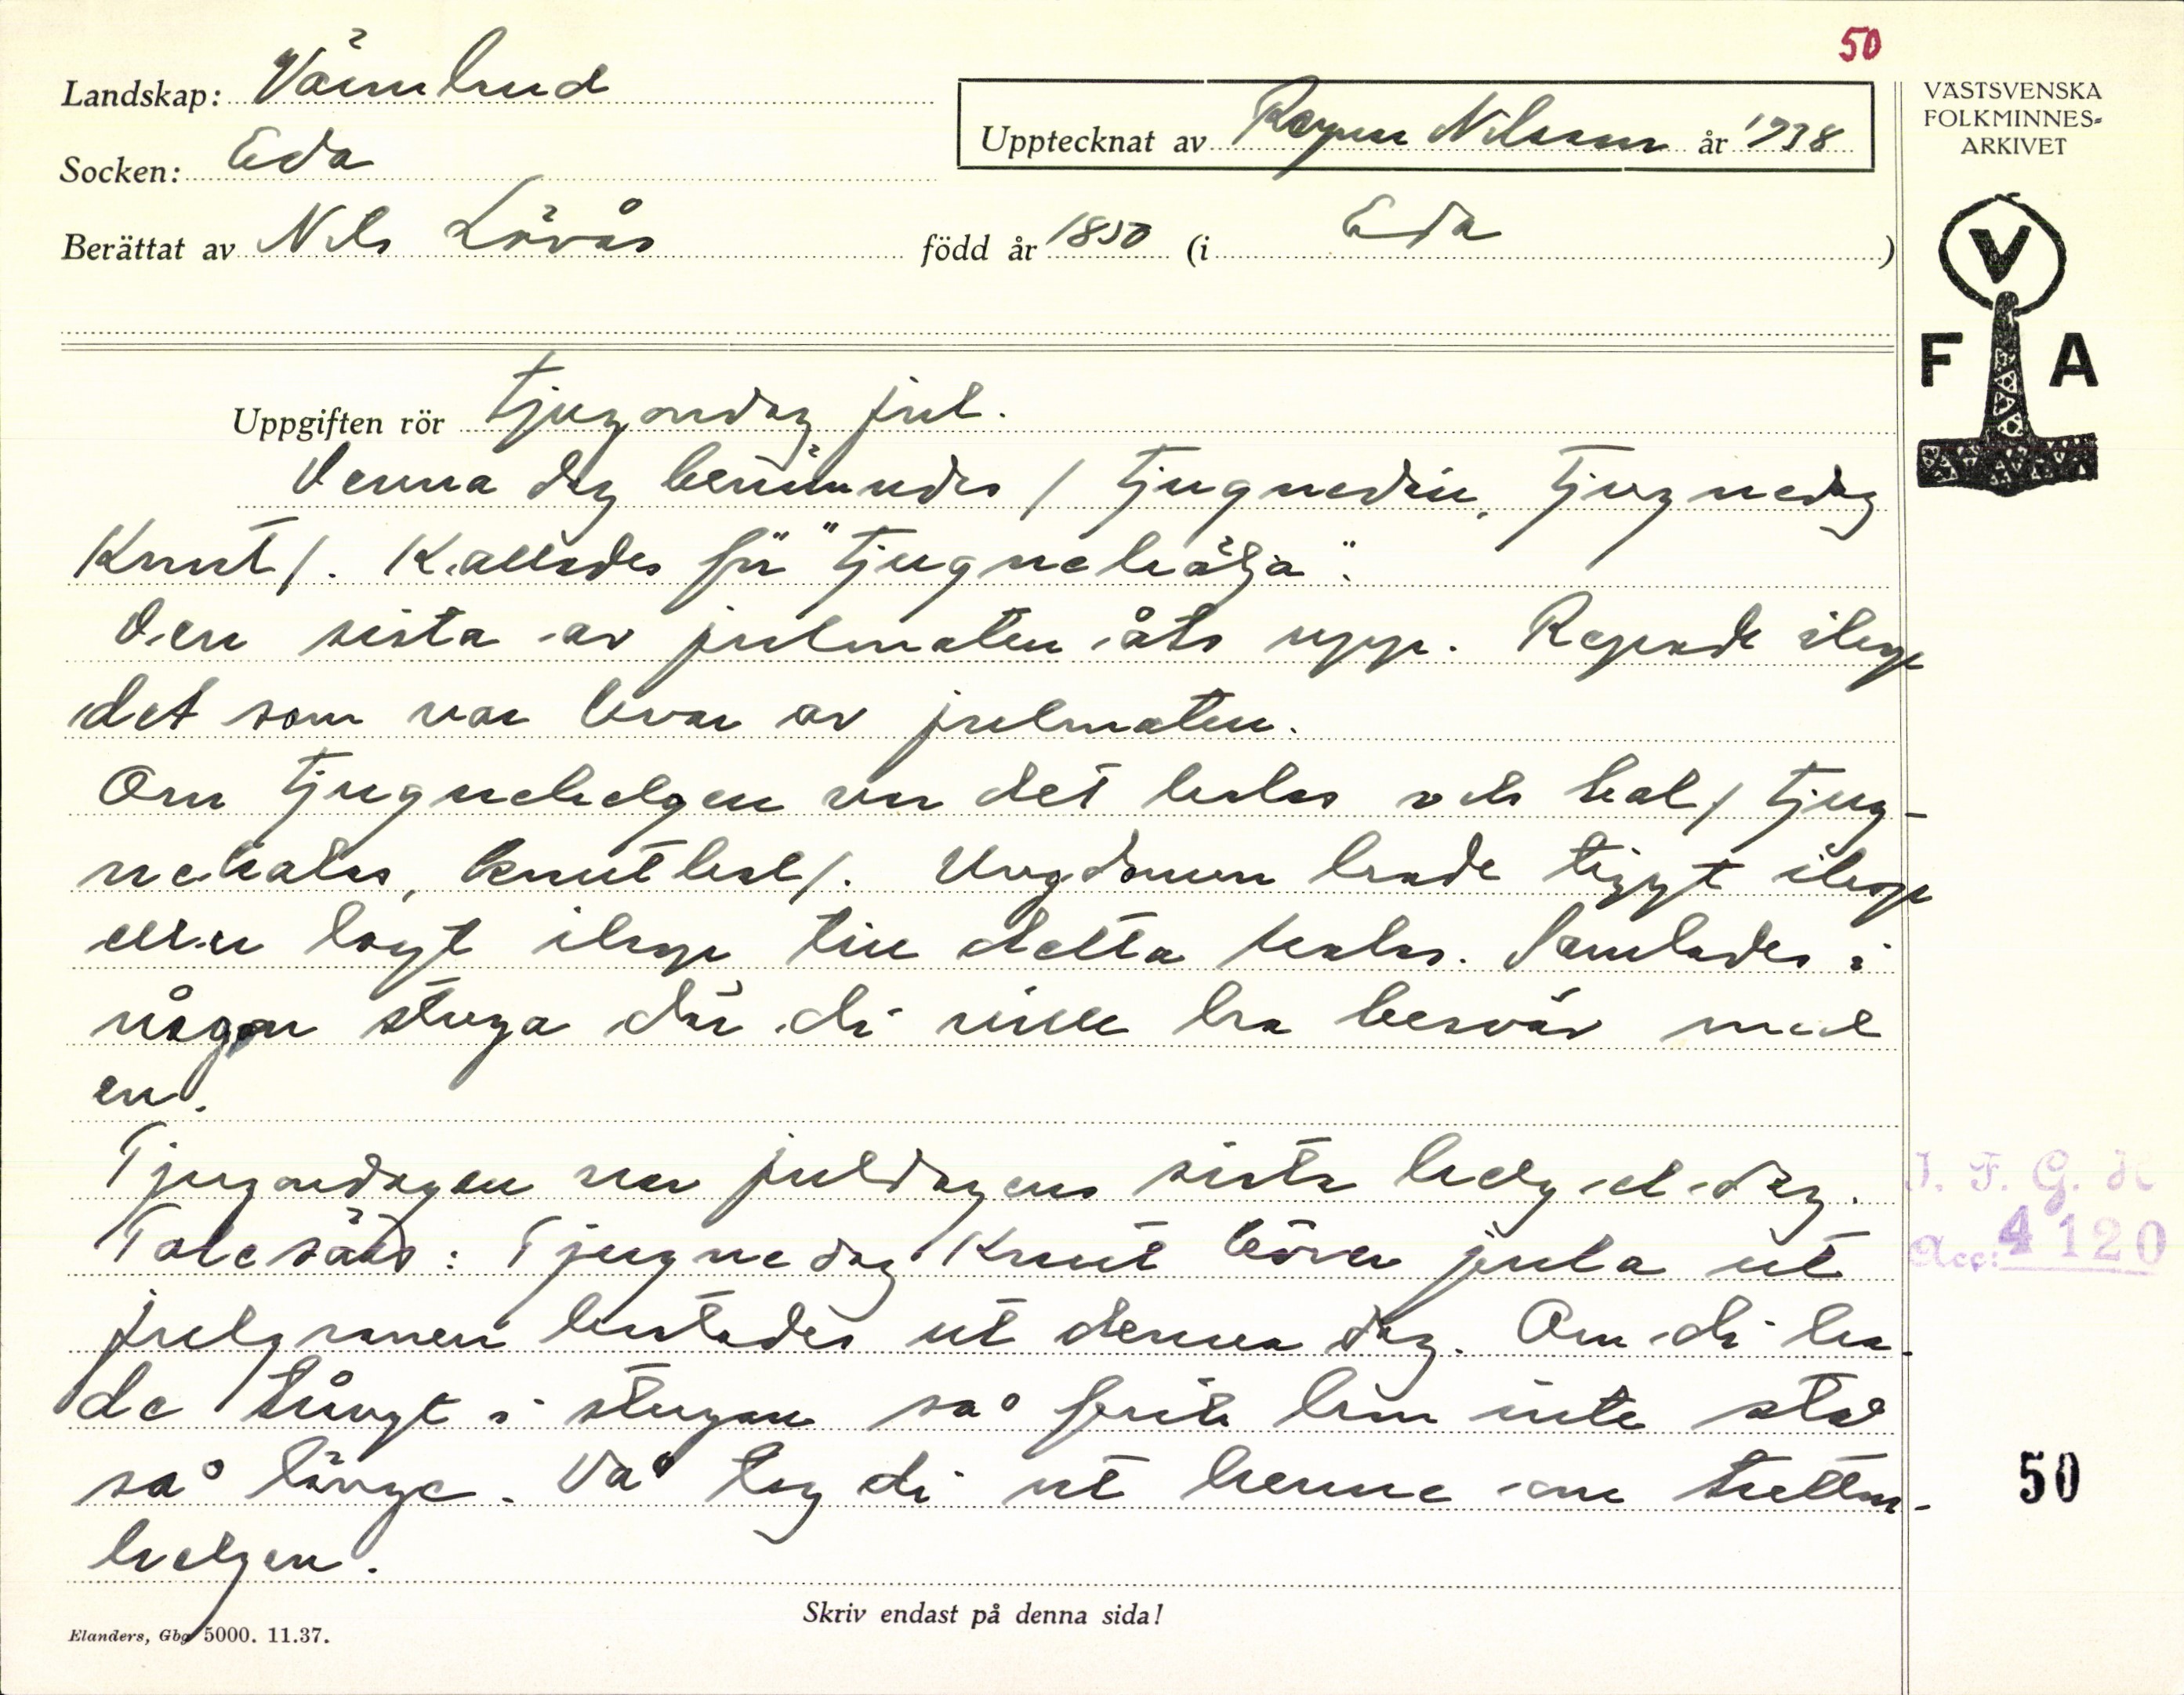 50
Landskap: Värmland
Upptecknat av Ragnar Nilsson år 1938
VÄSTSVENSKA
FOLKMINNES-
ARKIVET
Socken: Eda
Berättat av Nils Lövås född år 1850 (i Eda )
V
F A
Uppgiften rör Tjugondag jul.
Denna dag benämndes / Tjugnedan, Tjugnedag
Knut /. Kallades för "Tjugnehälja".
Den sista av julmaten åts upp. Rapade ihop
det som var kvar av julmaten.
Om Tjugnehelgen var det kalas och bal / Tjug-
nekalas, knutbal /. Ungdomen hade tiggt ihop
eller lagt ihop till detta kalas. Samlades i
någon stuga där di ville ha besvär med
en.
Tjugondagen var juldagens sista helgeldag.
Talesätt: Tjugnedag Knut körer jula ut
Julgranen kastades ut denna dag. Om di ha-
de trångt i stugan så feck han inte stå
så länge. Då tog di ut henne om tretton-
helgen.
I. F. G. H
Acc: 4120
50
Skriv endast på denna sida!
Elanders, Gbg 5000. 11.37.